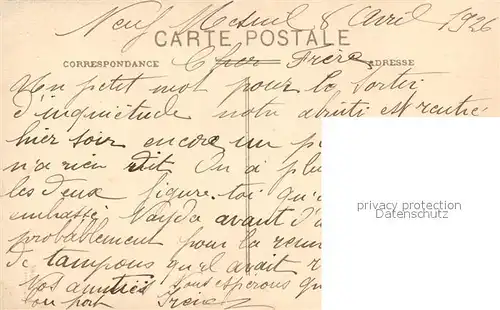 Neuf Mesnil 8 Avril 1926
CARTE POSTALE
CORRESPONDANCE ADRESSE
Cher Frère
Un petit mot pour te sortir
d'inquiétude notre abruti est rentré
hier soir encore un p
n'a rien dit On a plu
les deux figure-toi qu'
embrassé avant d'a
probablement pour la remer
de tampons qu'el avait r
Nos amitiés Nous espérons qu
privacy protection
Datenschutz